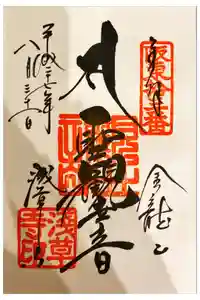 奉拝
坂東十三番
金龍山
聖観世音
浅草寺
平成二十七年
八月三十日